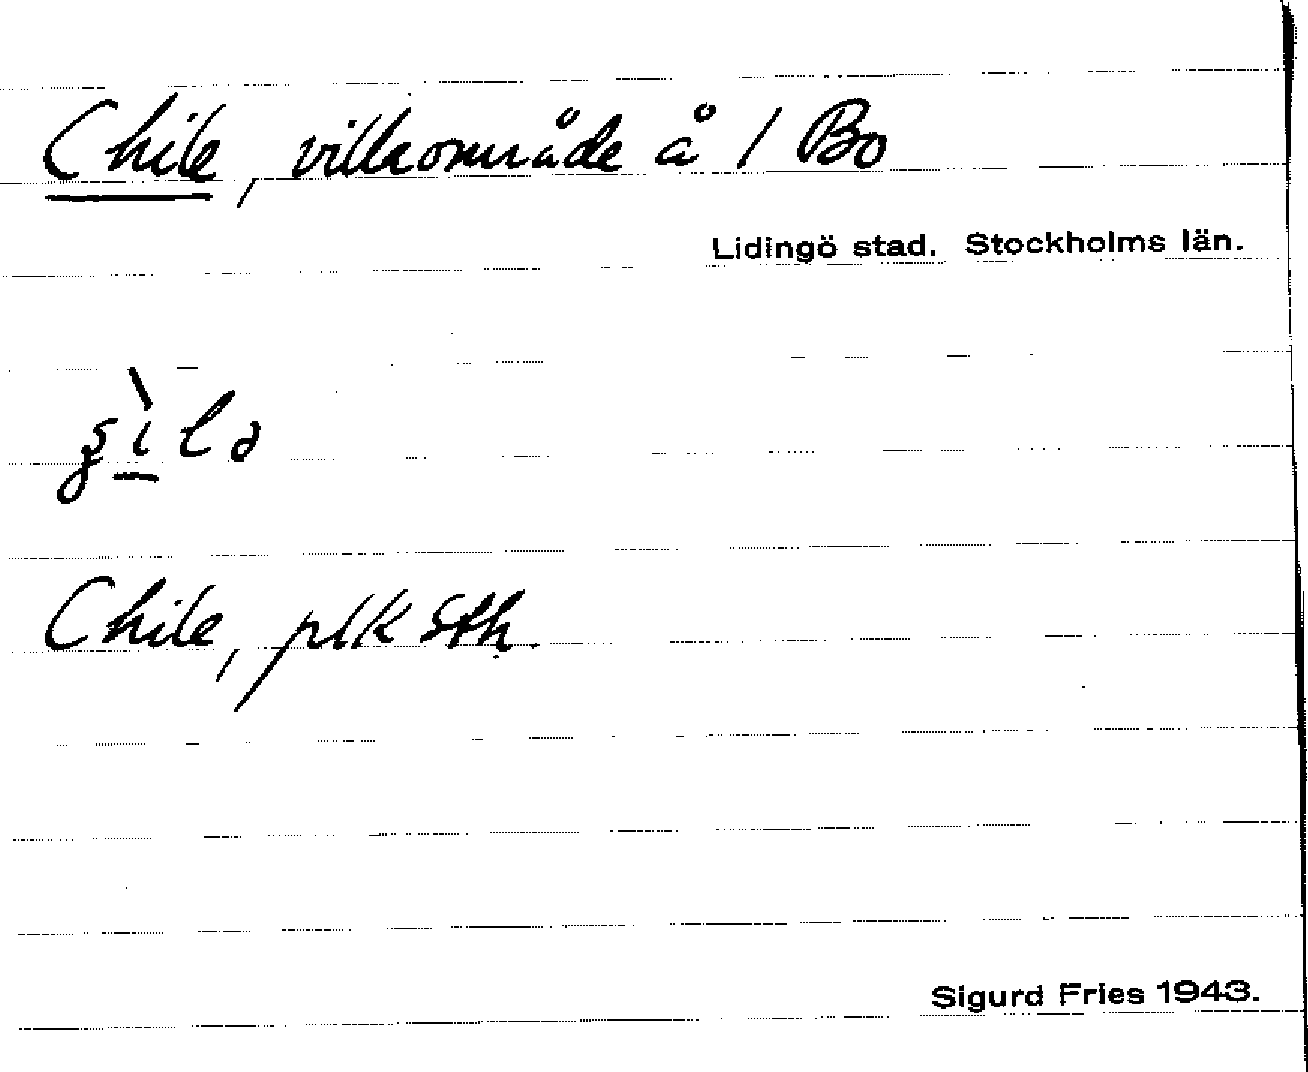 Chile, villaområde å 1 Bo
Lidingö stad. Stockholms län.
Chile, plk Sth.
Sigurd Fries 1943.